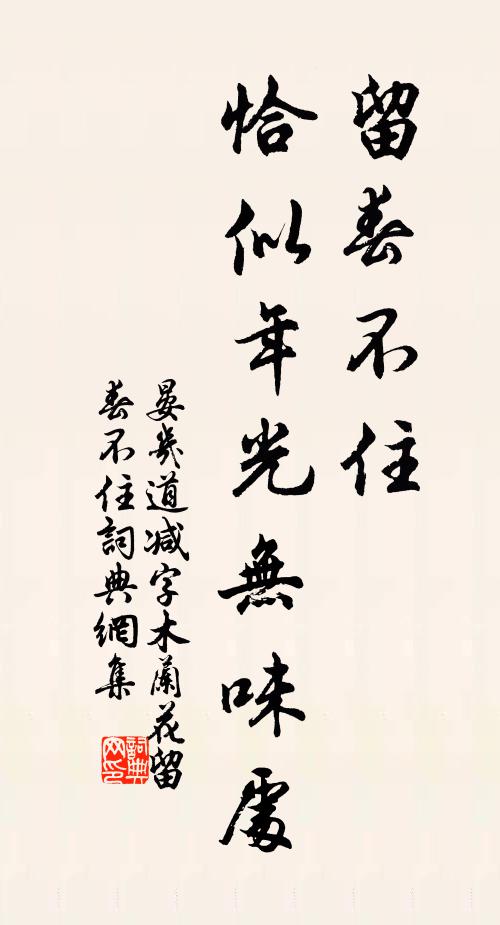 留春不住
恰似年光無味處
晏幾道減字木蘭花留
春不住詞典網集
詞典
网印